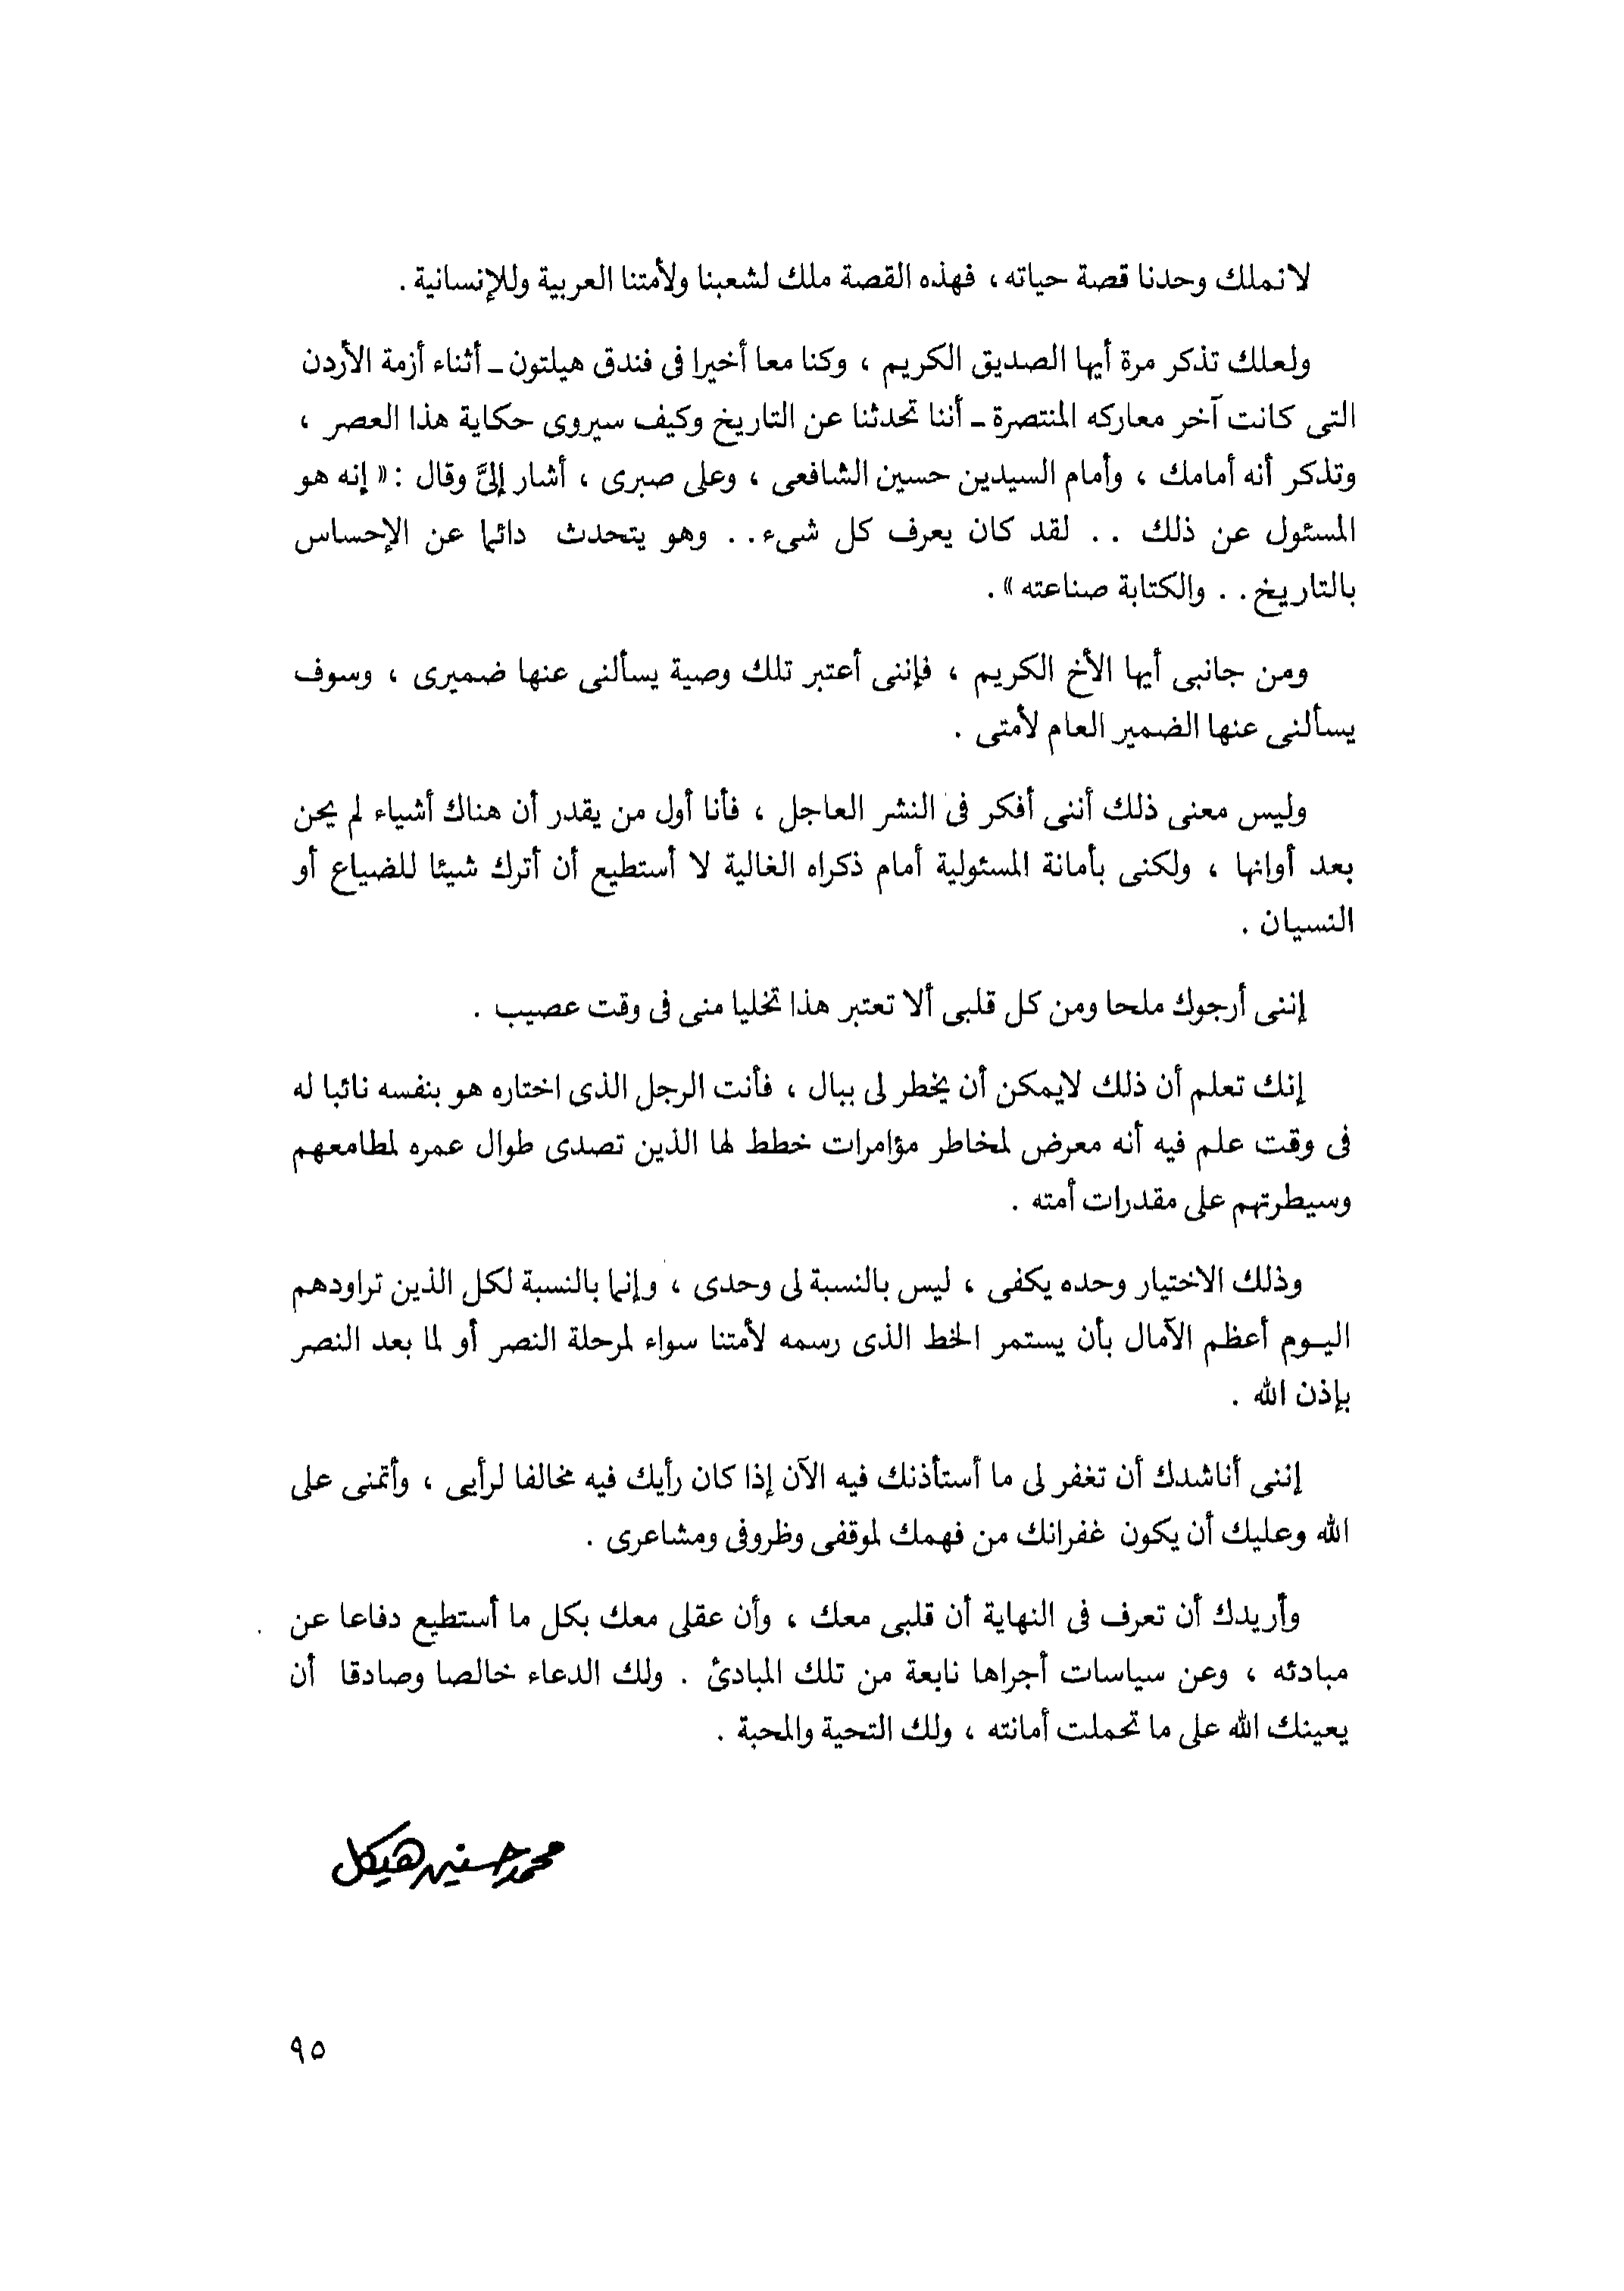 لا نملك وحدنا قصة حياته ، فهذه القصة ملك لشعبنا ولأمتنا العربية وللإنسانية .
ولعلك تذكر مرة أيها الصديق الكريم ، وكنا معا أخيرا فى فندق هيلتون ـ أثناء أزمة الأردن
التى كانت آخر معاركه المنتصرة ـ أننا تحدثنا عن التاريخ وكيف سيروى حكاية هذا العصر ،
وتذكر أنه أمامك ، وأمام السيدين حسين الشافعى ، وعلى صبرى ، أشار إلىَّ وقال : « إنه هو
المسئول عن ذلك . . لقد كان يعرف كل شىء . . وهو يتحدث دائما عن الإحساس
بالتاريخ . . والكتابة صناعته » .
ومن جانبى أيها الأخ الكريم ، فإننى أعتبر تلك وصية يسألنى عنها ضميرى ، وسوف
يسألنى عنها الضمير العام لأمتى .
وليس معنى ذلك أننى أفكر فى النشر العاجل ، فأنا أول من يقدر أن هناك أشياء لم يحن
بعد أوانها ، ولكنى بأمانة المسئولية أمام ذكراه الغالية لا أستطيع أن أترك شيئا للضياع أو
النسيان .
إننى أرجوك ملحا ومن كل قلبى ألا تعتبر هذا تخليا منى فى وقت عصيب .
إنك تعلم أن ذلك لايمكن أن يخطر لى ببال ، فأنت الرجل الذى اختاره هو بنفسه نائبا له
فى وقت علم فيه أنه معرض لمخاطر مؤامرات خطط لها الذين تصدى طوال عمره لمطامعهم
وسيطرتهم على مقدرات أمته .
وذلك الاختيار وحده يكفى ، ليس بالنسبة لى وحدى ، وإنما بالنسبة لكل الذين تراودهم
اليـوم أعظم الآمال بأن يستمر الخط الذى رسمه لأمتنا سواء لمرحلة النصر أو لما بعد النصر
بإذن الله .
إننى أناشدك أن تغفر لى ما أستأذنك فيه الآن إذا كان رأيك فيه مخالفا لرأيى ، وأتمنى على
الله وعليك أن يكون غفرانك من فهمك لموقفى وظروفى ومشاعرى .
وأريدك أن تعرف فى النهاية أن قلبى معك ، وأن عقلى معك بكل ما أستطيع دفاعا عن
مبادئه ، وعن سياسات أجراها نابعة من تلك المبادئ . ولك الدعاء خالصا وصادقا أن
يعينك الله على ما تحملت أمانته ، ولك التحية والمحبة .
محمد حسنين هيكل
٩٥